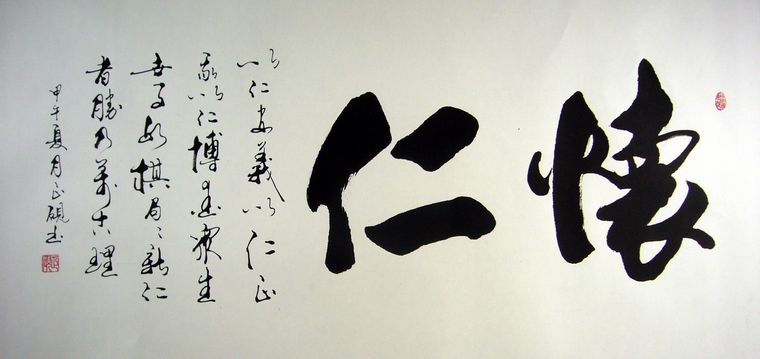 懷仁
以仁安義以仁正
我以仁博愛眾生
世事如棋局々新仁
者勝乃萬古理
甲午夏月正硯書